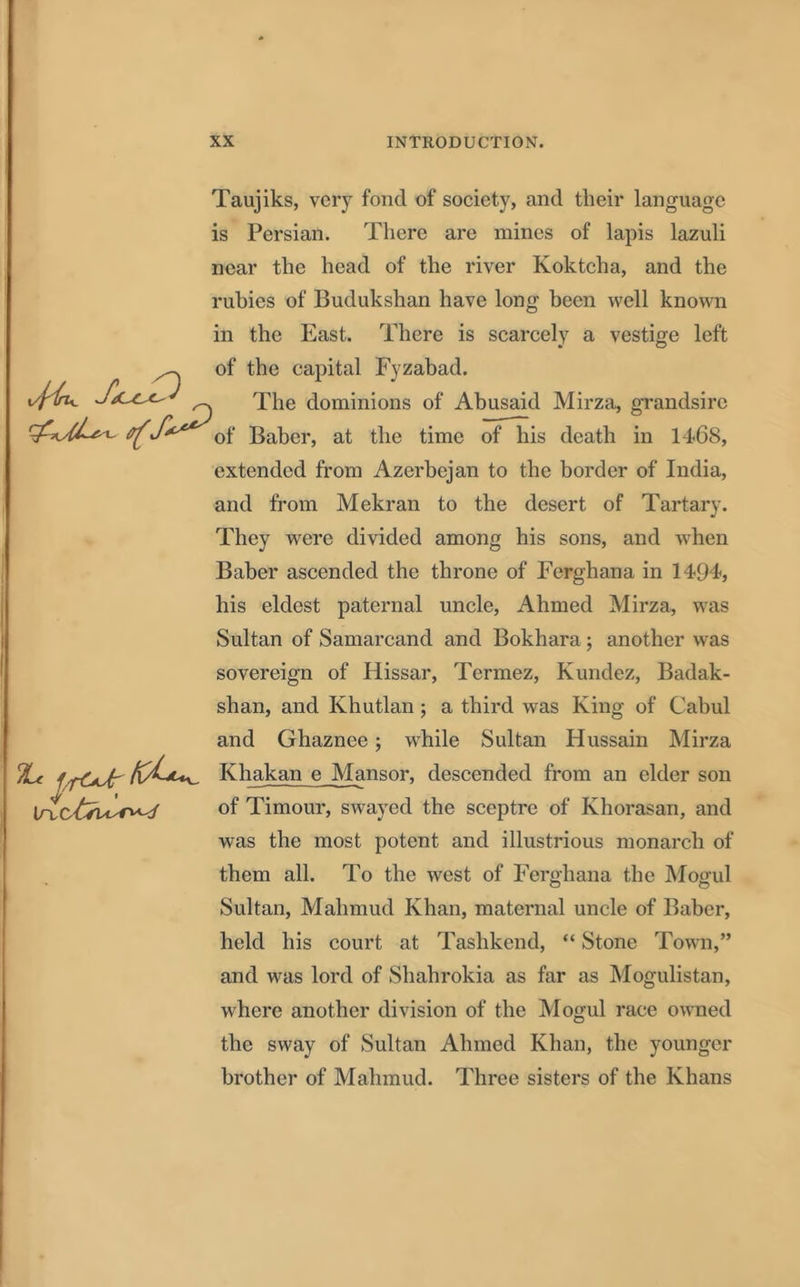 XX INTRODUCTION.
Taujiks, very fond of society, and their language
is Persian. There are mines of lapis lazuli
near the head of the river Koktcha, and the
rubies of Budukshan have long been well known
in the East. There is scarcely a vestige left
of the capital Fyzabad.
The dominions of Abusaid Mirza, grandsire
of Baber, at the time of his death in 1468,
extended from Azerbejan to the border of India,
and from Mekran to the desert of Tartary.
They were divided among his sons, and when
Baber ascended the throne of Ferghana in 1494,
his eldest paternal uncle, Ahmed Mirza, was
Sultan of Samarcand and Bokhara; another was
sovereign of Hissar, Termez, Kundez, Badak-
shan, and Khutlan; a third was King of Cabul
and Ghaznee; while Sultan Hussain Mirza
Khakan e Mansor, descended from an elder son
of Timour, swayed the sceptre of Khorasan, and
was the most potent and illustrious monarch of
them all. To the west of Ferghana the Mogul
Sultan, Mahmud Khan, maternal uncle of Baber,
held his court at Tashkend, “Stone Town,”
and was lord of Shahrokia as far as Mogulistan,
where another division of the Mogul race owned
the sway of Sultan Ahmed Khan, the younger
brother of Mahmud. Three sisters of the Khans
Father of
The great Khan
victorious